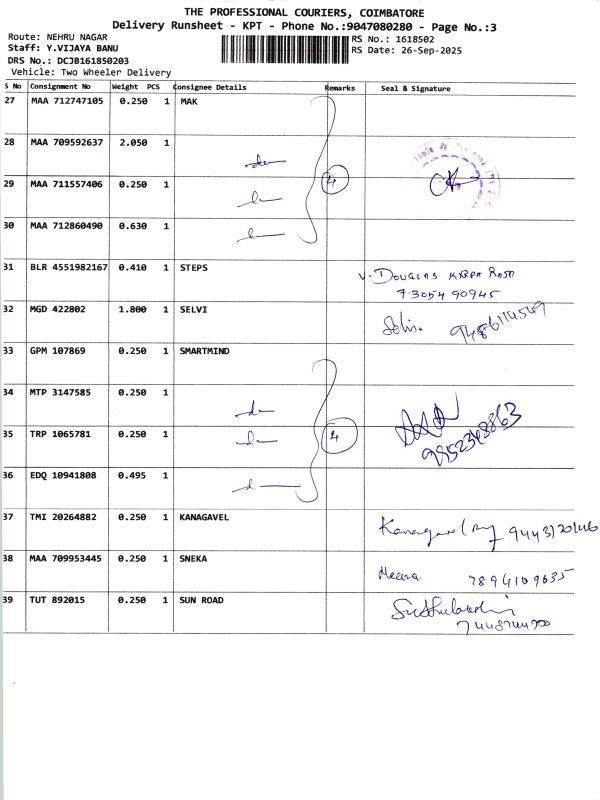 THE PROFESSIONAL COURIERS, COIMBATORE
Delivery Runsheet - KPT - Phone No.:9047080280 - Page No.:3
Route: NEHRU NAGAR
RS No.: 1618502
Staff: Y.VIJAYA BANU
RS Date: 26-Sep-2025
DRS No.: DCJB161850203
Vehicle: Two Wheeler Delivery
S No Consignment No Weight PCS Consignee Details Remarks Seal & Signature
27 MAA 712747105 0.250 1 MAK
28 MAA 709592637 2.050 1
29 MAA 711557406 0.250 1 4
30 MAA 712860490 0.630 1
31 BLR 4551982167 0.410 1 STEPS V. DOUGLAS
7305490945
32 MGD 422802 1.800 1 SELVI Selvi
33 GPM 107869 0.250 1 SMARTMIND
34 MTP 3147585 0.250 1
35 TRP 1065781 0.250 1 4 9852348863
36 EDQ 10941808 0.495 1
37 TMI 20264882 0.250 1 KANAGAVEL Kanagavel
38 MAA 709953445 0.250 1 SNEKA Meena 7894109635
39 TUT 892015 0.250 1 SUN ROAD